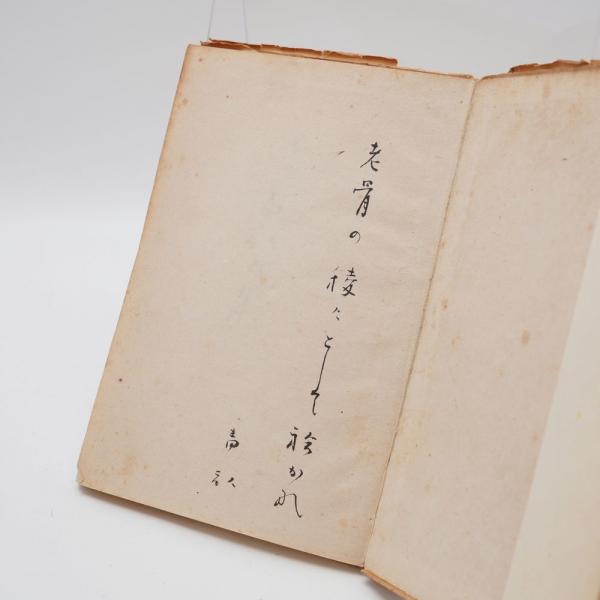 老骨の稜々として袷かな
青畝